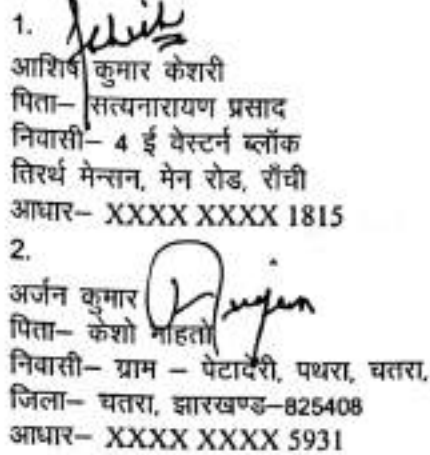 1.
आशिष कुमार केशरी
पिता– सत्यनारायण प्रसाद
निवासी– 4 ई वेस्टर्न ब्लॉक
तिरर्थ मेन्सन, मेन रोड, राँची
आधार– XXXX XXXX 1815
2.
अर्जन कुमार
पिता– केशो माहतो
निवासी– ग्राम – पेटादेरी, पथरा, चतरा,
जिला– चतरा, झारखण्ड–825408
आधार– XXXX XXXX 5931